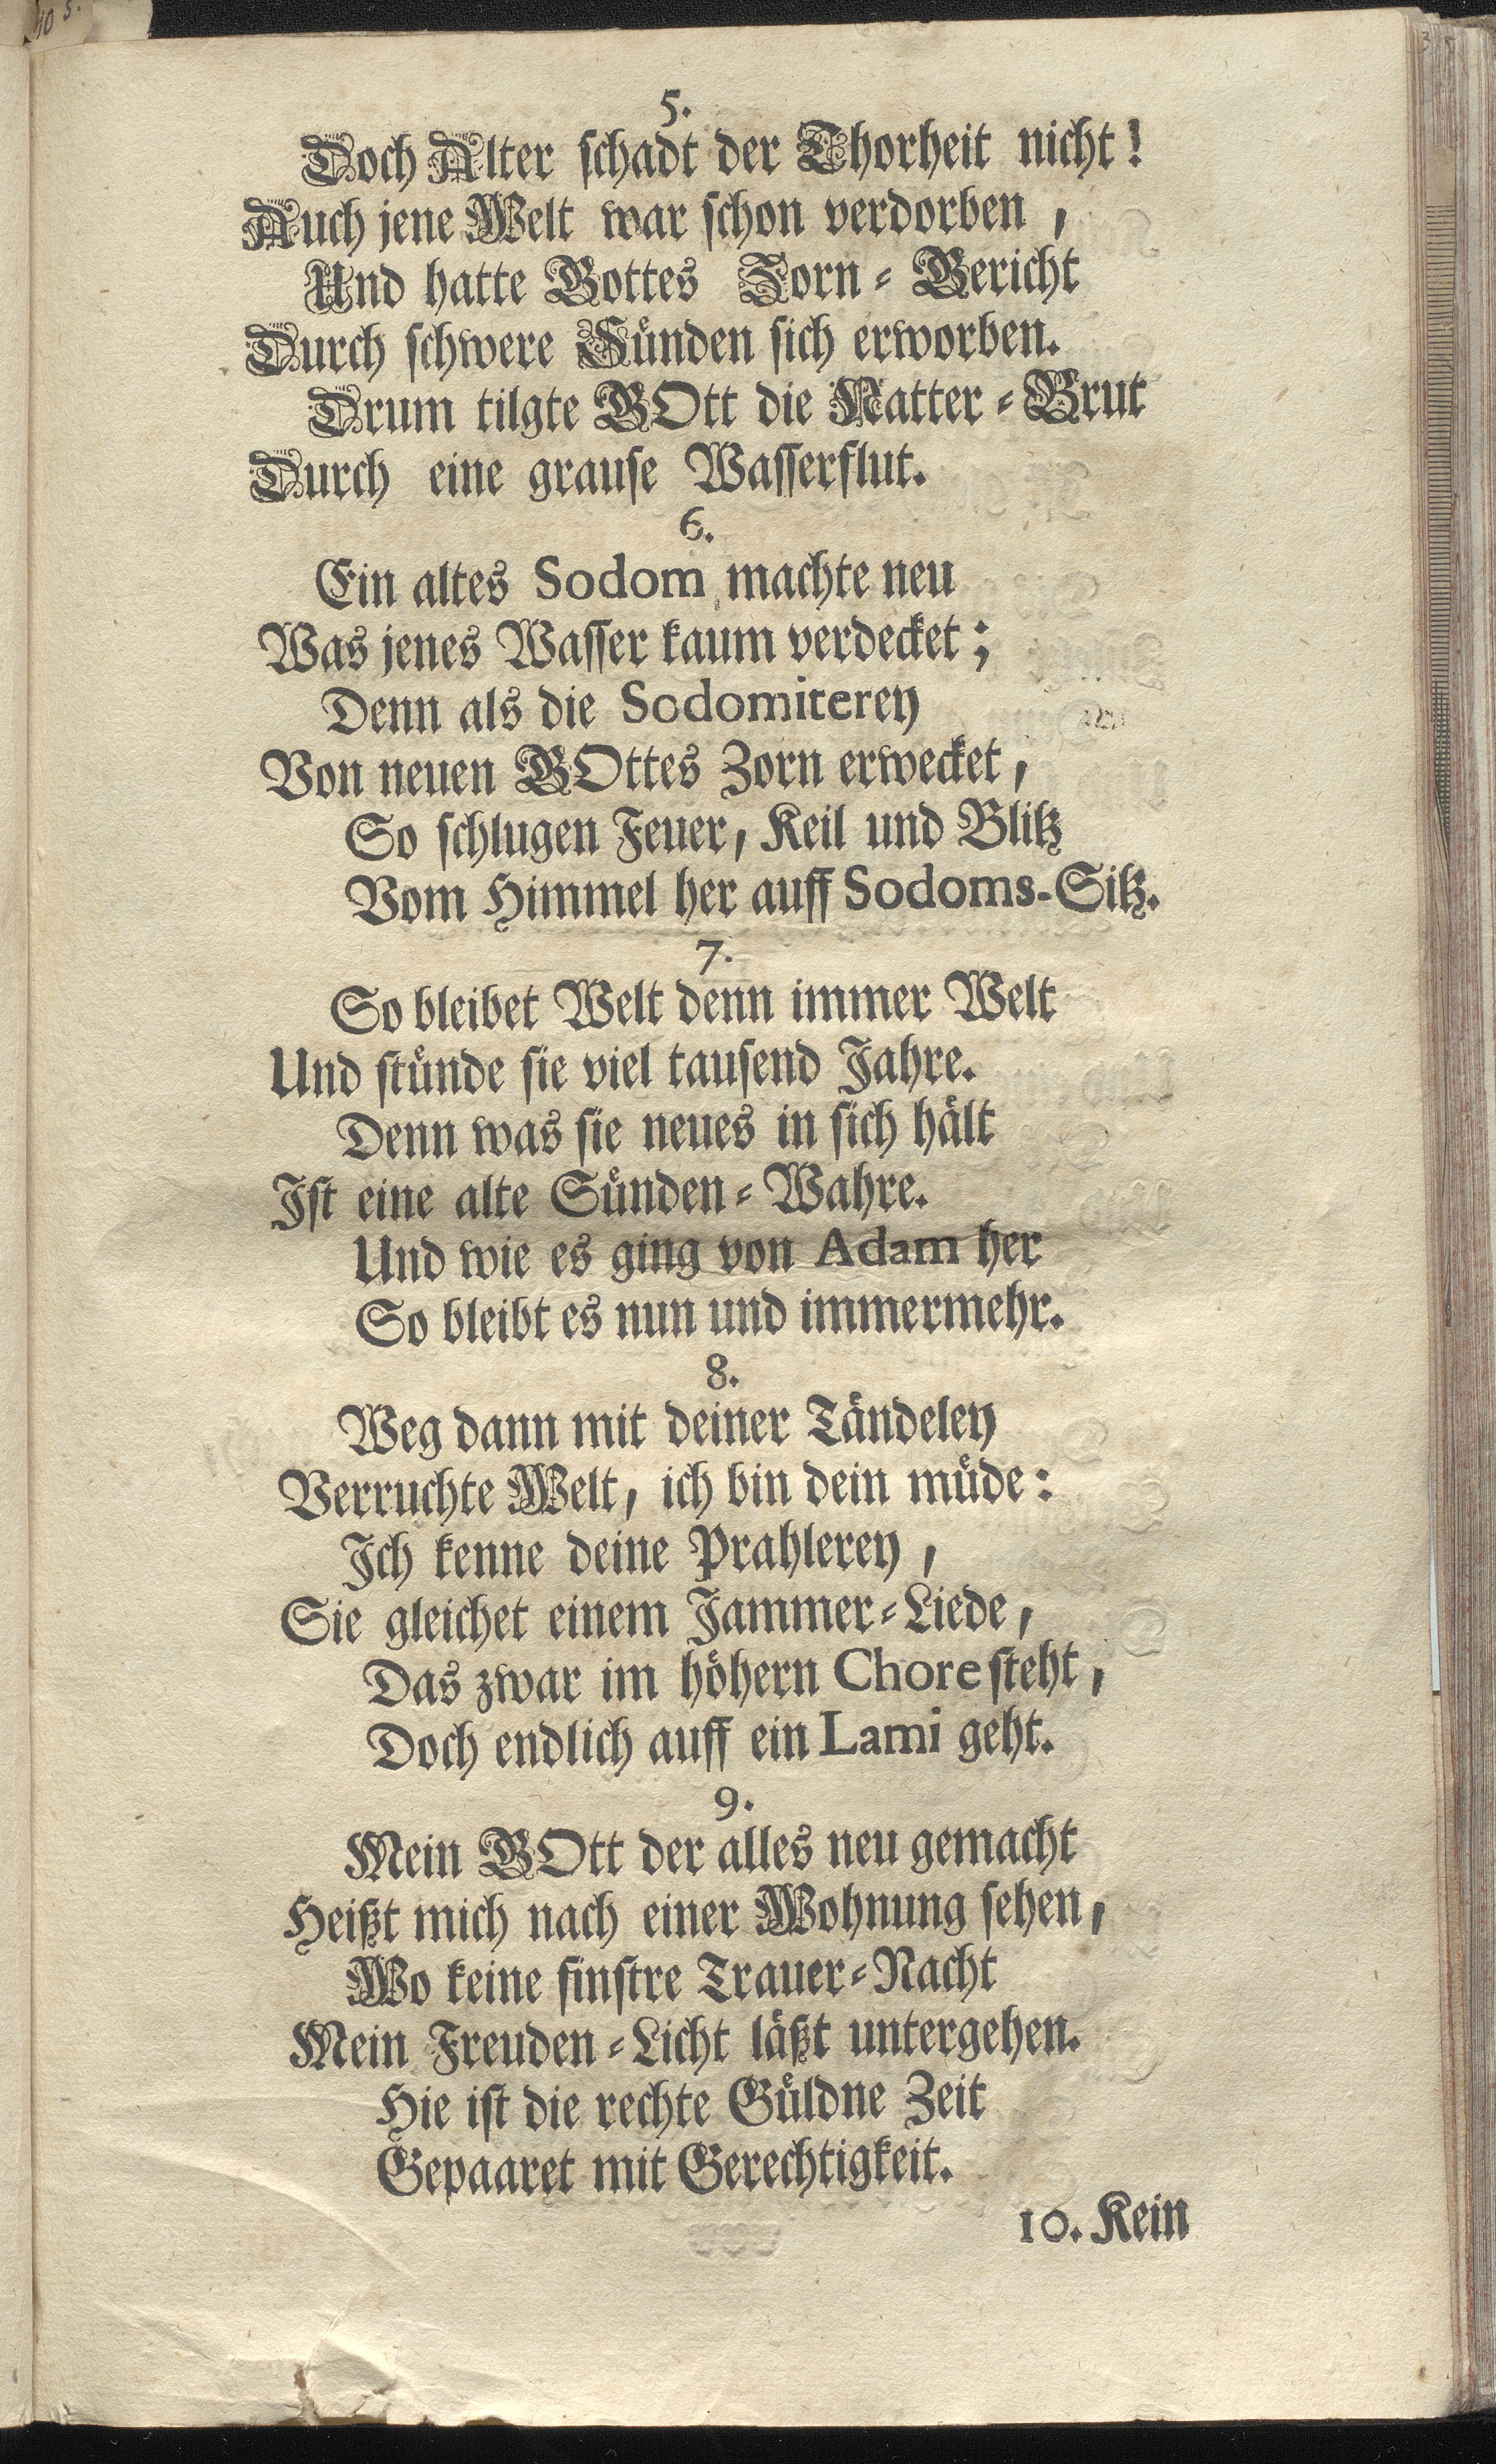 5.
Doch Alter schadt der Thorheit nicht!
Auch jene Welt war schon verdorben,
Und hatte Gottes Zorn-Gericht
Durch schwere Sünden sich erworben.
Drum tilgte GOtt die Natter-Brut
Durch eine grause Wasserflut.
6.
Ein altes Sodom machte neu
Was jenes Wasser kaum verdecket;
Denn als die Sodomiterey
Von neuen GOttes Zorn erwecket,
So schlugen Feuer, Keil und Blitz
Vom Himmel her auff Sodoms-Sitz.
7.
So bleibet Welt denn immer Welt
Und stünde sie viel tausend Jahre.
Denn was sie neues in sich hält
Ist eine alte Sünden-Wahre.
Und wie es ging von Adam her
So bleibt es nun und immermehr.
8.
Weg dann mit deiner Tändeley
Verruchte Welt, ich bin dein müde:
Ich kenne deine Prahlerey,
Sie gleichet einem Jammer-Liede,
Das zwar im höhern Chore steht,
Doch endlich auff ein Lami geht.
9.
Mein GOtt der alles neu gemacht
Heißt mich nach einer Wohnung sehen,
Wo keine finstre Trauer-Nacht
Mein Freuden-Licht läßt untergehen.
Hie ist die rechte Güldne Zeit
Gepaaret mit Gerechtigkeit.
10. Kein